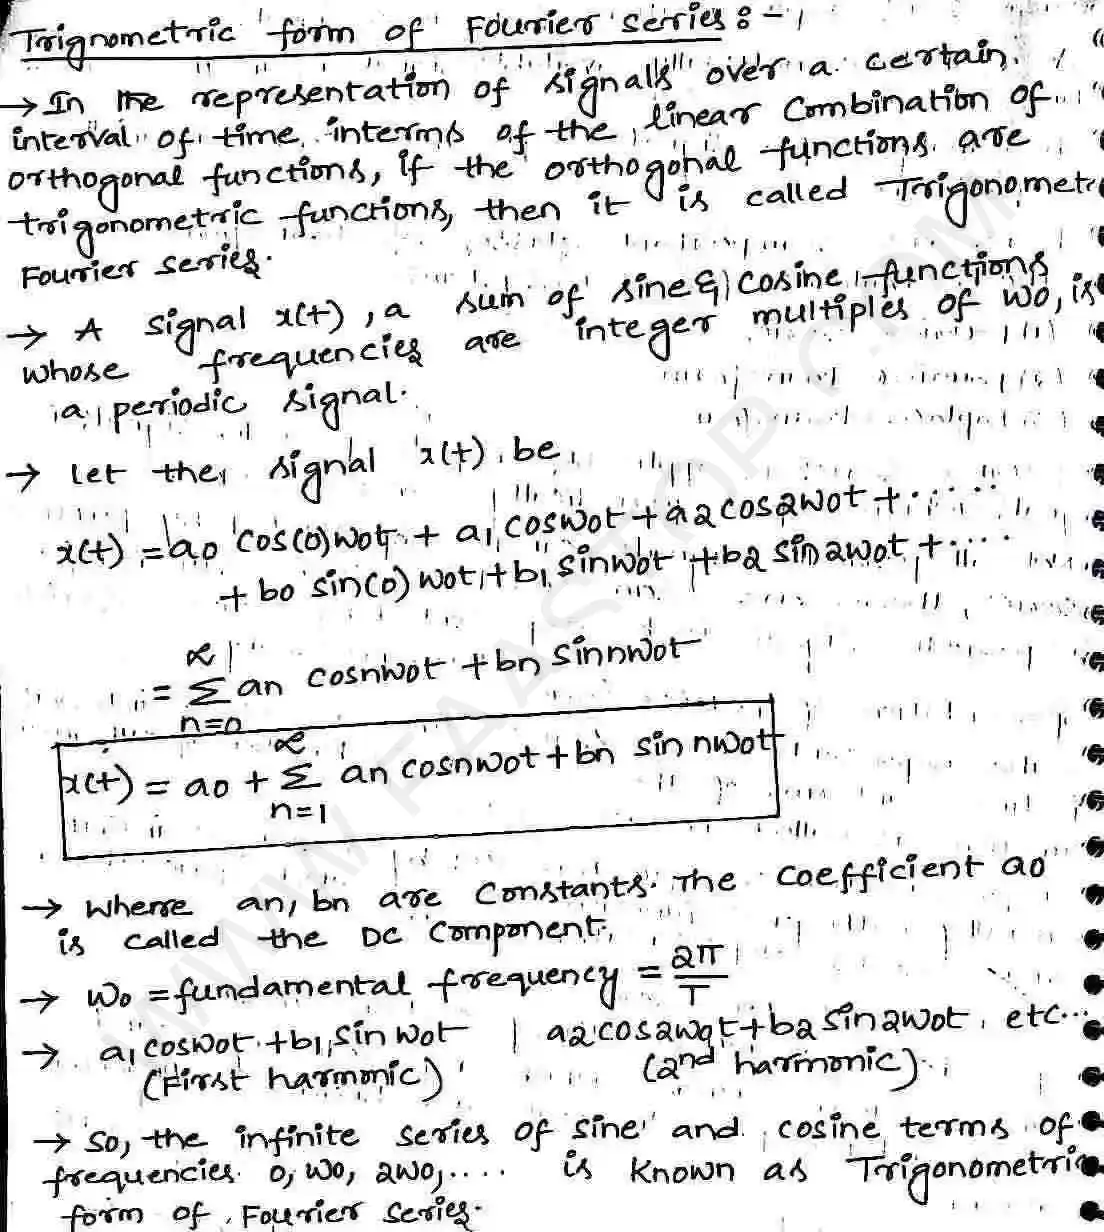 Trignometric form of Fourier series:-
→ In the representation of signals over a certain
interval of time interms of the linear combination of
orthogonal functions, if the orthogonal functions are
trigonometric functions, then it is called Trigonomet
Fourier series.
→ A signal x(t), a sum of sine & cosine functions
whose frequencies are integer multiples of ω0, is
a periodic signal.
→ let the signal x(t) be
x(t) = a0 cos(0)ω0t + a1 cosω0t + a2 cos2ω0t + ......
+ b0 sin(0) ω0t + b1 sinω0t + b2 sin2ω0t + ......
= ∑ n=0 ∞ an cosnω0t + bn sinnω0t
x(t) = a0 + ∑ n=1 ∞ an cosnω0t + bn sin nω0t
→ where an, bn are constants. The coefficient a0
is called the DC component.
→ ω0 = fundamental frequency = 2π/T
→ a1 cosω0t + b1 sin ω0t | a2 cos2ω0t + b2 sin2ω0t, etc...
(First harmonic) (2nd harmonic).
→ So, the infinite series of sine and cosine terms of
frequencies 0, ω0, 2ω0,.... is known as Trigonometric
form of Fourier series.
WWW.FAASTOP.COM